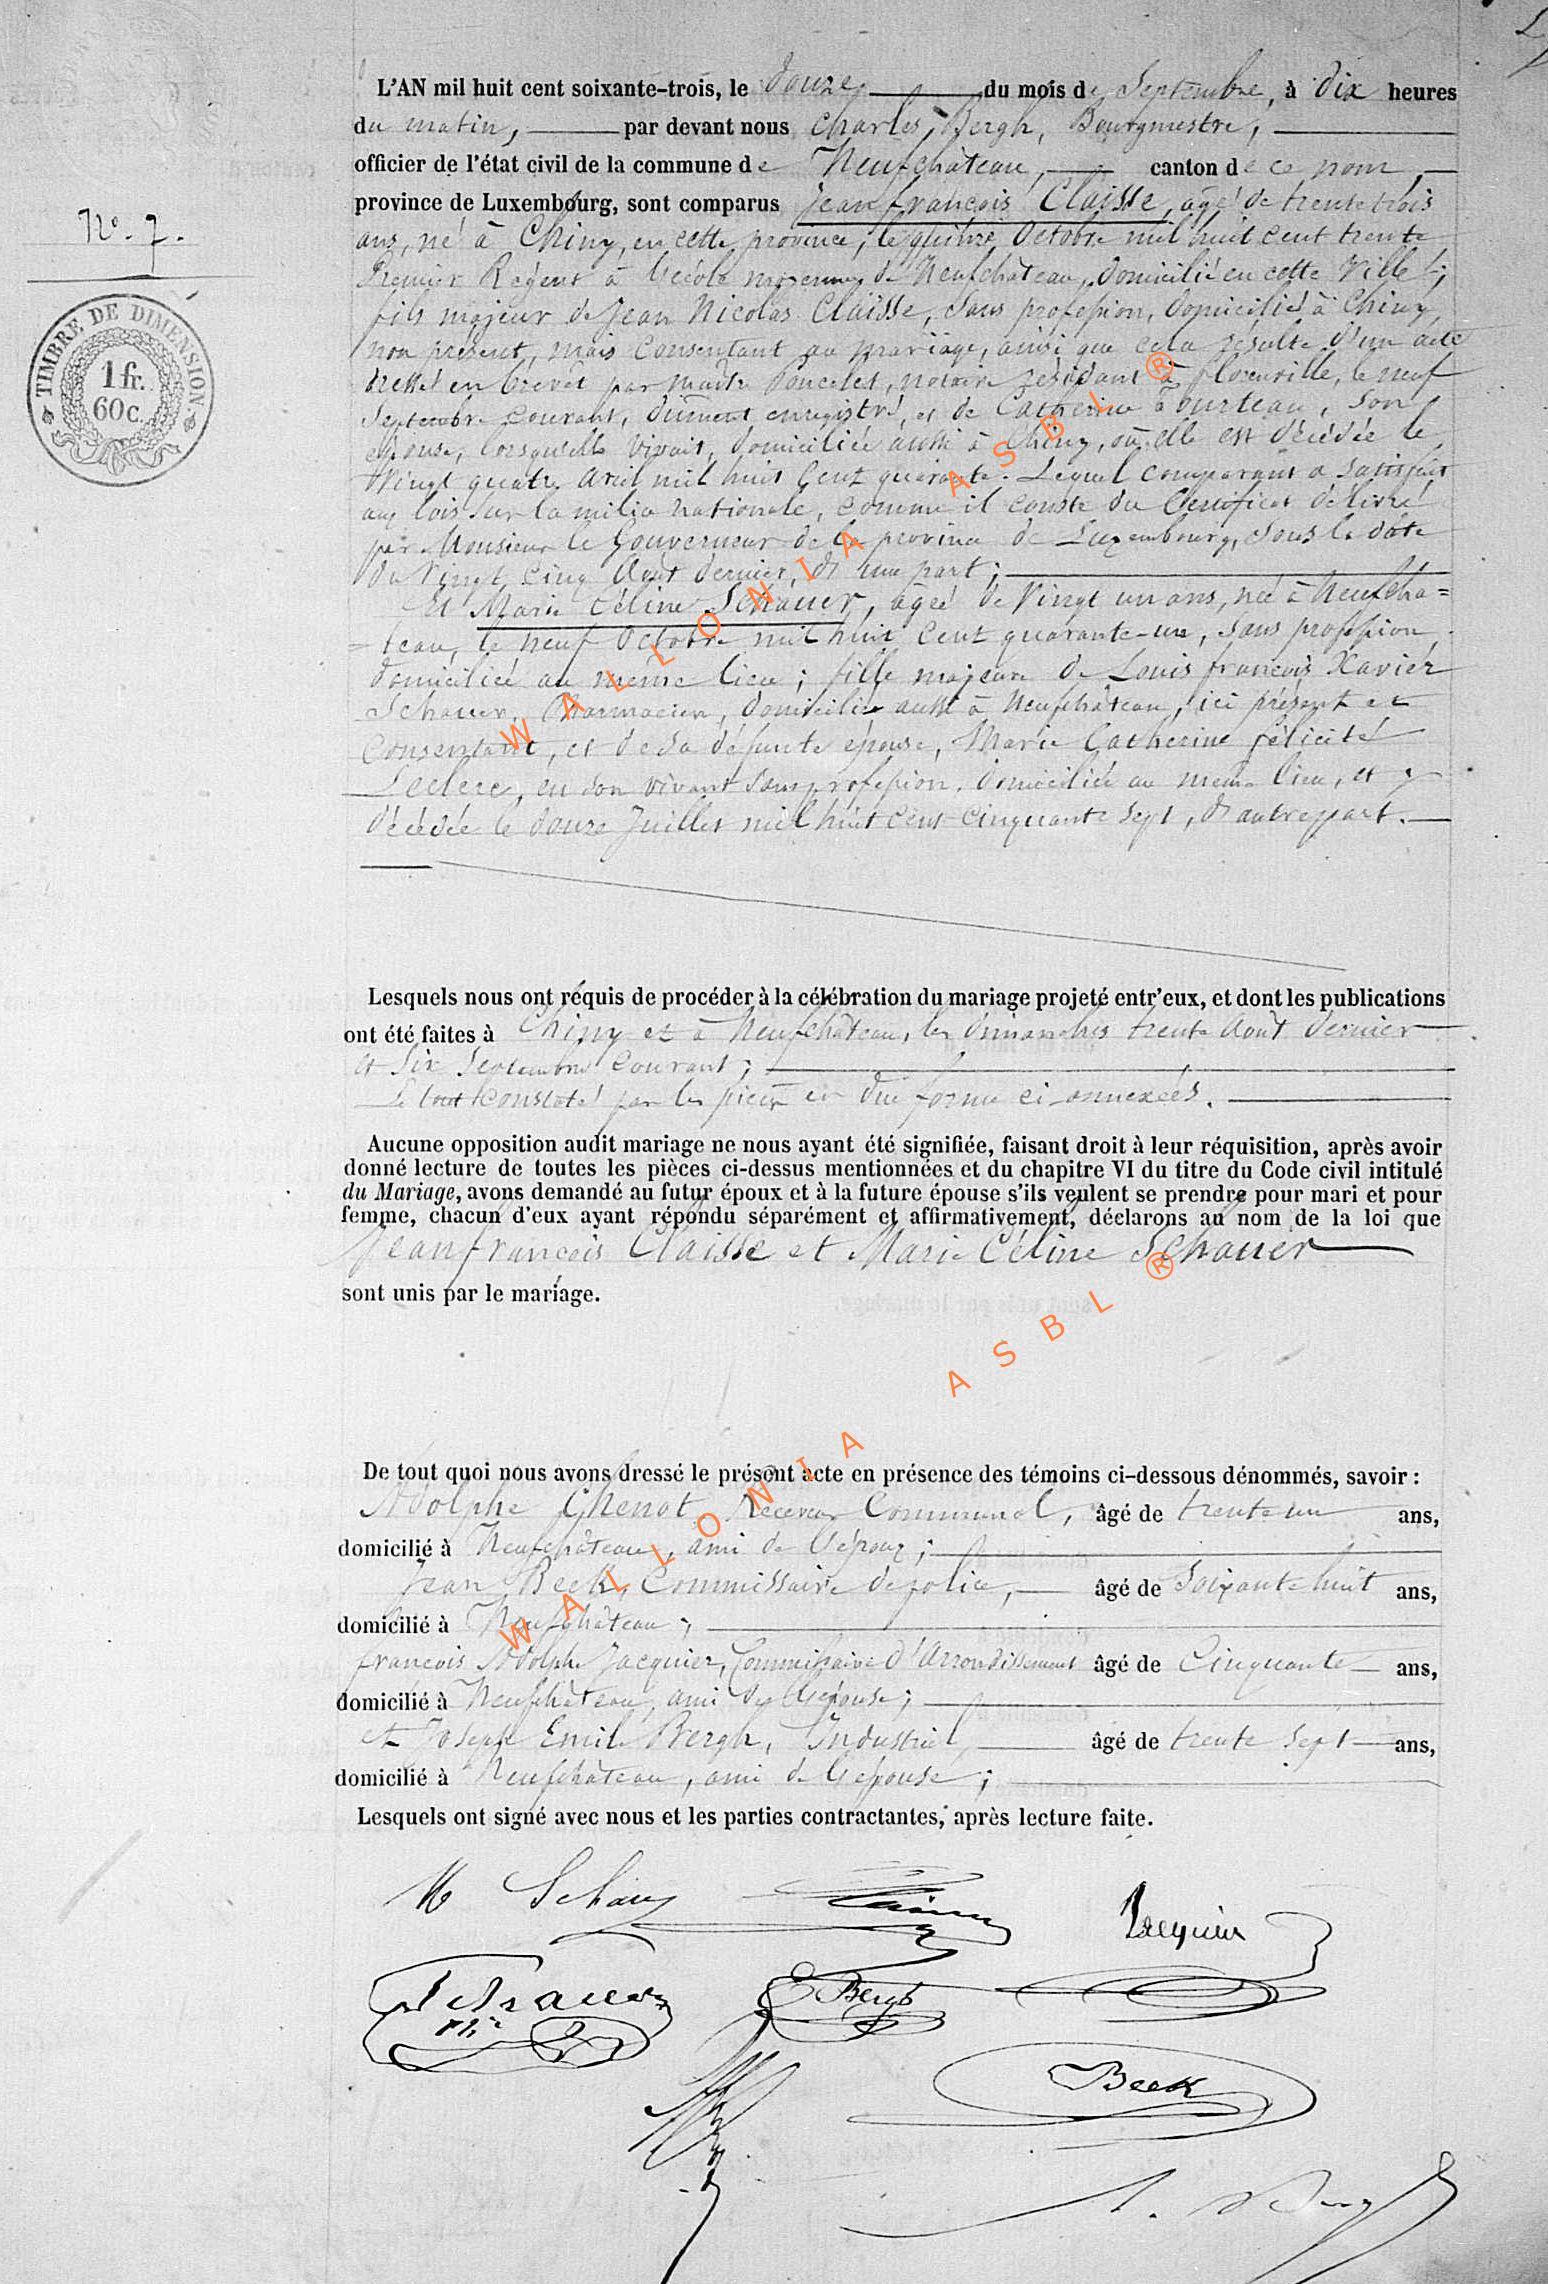 L'AN mil huit cent soixante-trois, le douze du mois de Septembre, à dix heures
du matin, par devant nous Charles Bergh, Bourgmestre,
officier de l'état civil de la commune de Neufchâteau, canton de ce nom,
province de Luxembourg, sont comparus Jean françois Claisse, âgé de trente trois
ans, né à Chiny, en cette province, le quinze Octobre mil huit cent trente
Premier Régent à l'école moyenne de Neufchâteau, domicilié en cette Ville;
fils majeur de Jean Nicolas Claisse, sans profession, domicilié à Chiny,
non présent, mais consentant au mariage, ainsi que cela résulte d'un acte
dressé en brevet par maître Poncelet, notaire résidant à florenville, le neuf
Septembre courant, dûment enregistré, et de Catherine son
épouse, lorsqu'elle vivait, domiciliée aussi à Chiny, où elle est décédée le
Vingt quatre avril mil huit Cent quarante. Lequel comparant a satisfait
aux lois sur la milice nationale, comme il conste du Certificat délivré
par Monsieur le Gouverneur de la province de Luxembourg, sous la date
du Vingt cinq Août dernier, d'une part;
Et Marie Céline Schauer, âgée de Vingt un ans, née à Neufchâ=
=teau, le neuf Octobre mil huit Cent quarante-un, sans profession,
domiciliée au même lieu; fille majeure de Louis françois Xavier
Schauer, Pharmacien, domicilié aussi à Neufchâteau, ici présent et
Consentant, et de sa défunte épouse, Marie Catherine félicité
Leclerc, en son vivant sans profession, domiciliée au même lieu, et y
décédée le douze Juillet mil huit cent cinquante sept, d'autre part.
No. 7.
TIMBRE DE DIMENSION
1 fr.
60 c.
Lesquels nous ont requis de procéder à la célébration du mariage projeté entr'eux, et dont les publications
ont été faites à Chiny et à Neufchâteau, les dimanches trente Août dernier
et Six Septembre courant;
Le tout constaté par les pièces en due forme ci-annexées.
Aucune opposition audit mariage ne nous ayant été signifiée, faisant droit à leur réquisition, après avoir
donné lecture de toutes les pièces ci-dessus mentionnées et du chapitre VI du titre du Code civil intitulé
du Mariage, avons demandé au futur époux et à la future épouse s'ils veulent se prendre pour mari et pour
femme, chacun d'eux ayant répondu séparément et affirmativement, déclarons au nom de la loi que
Jean françois Claisse et Marie Céline Schauer
sont unis par le mariage.
De tout quoi nous avons dressé le présent acte en présence des témoins ci-dessous dénommés, savoir :
Adolphe Chenot Receveur Communal, âgé de trente un ans,
domicilié à Neufchâteau, ami de l'époux;
Jean Beck, Commissaire de police, âgé de Soixante huit ans,
domicilié à Neufchâteau;
françois Adolphe Jacquier, Commissaire d'Arrondissement âgé de Cinquante ans,
domicilié à Neufchâteau, ami de l'épouse;
et Joseph Emile Bergh, Industriel, âgé de trente sept ans,
domicilié à Neufchâteau, ami de l'épouse;
Lesquels ont signé avec nous et les parties contractantes, après lecture faite.
M Schauer
Jacquier
Schauer
E Bergh
Beck
WALLONIA ASBL ®
WALLONIA ASBL ®